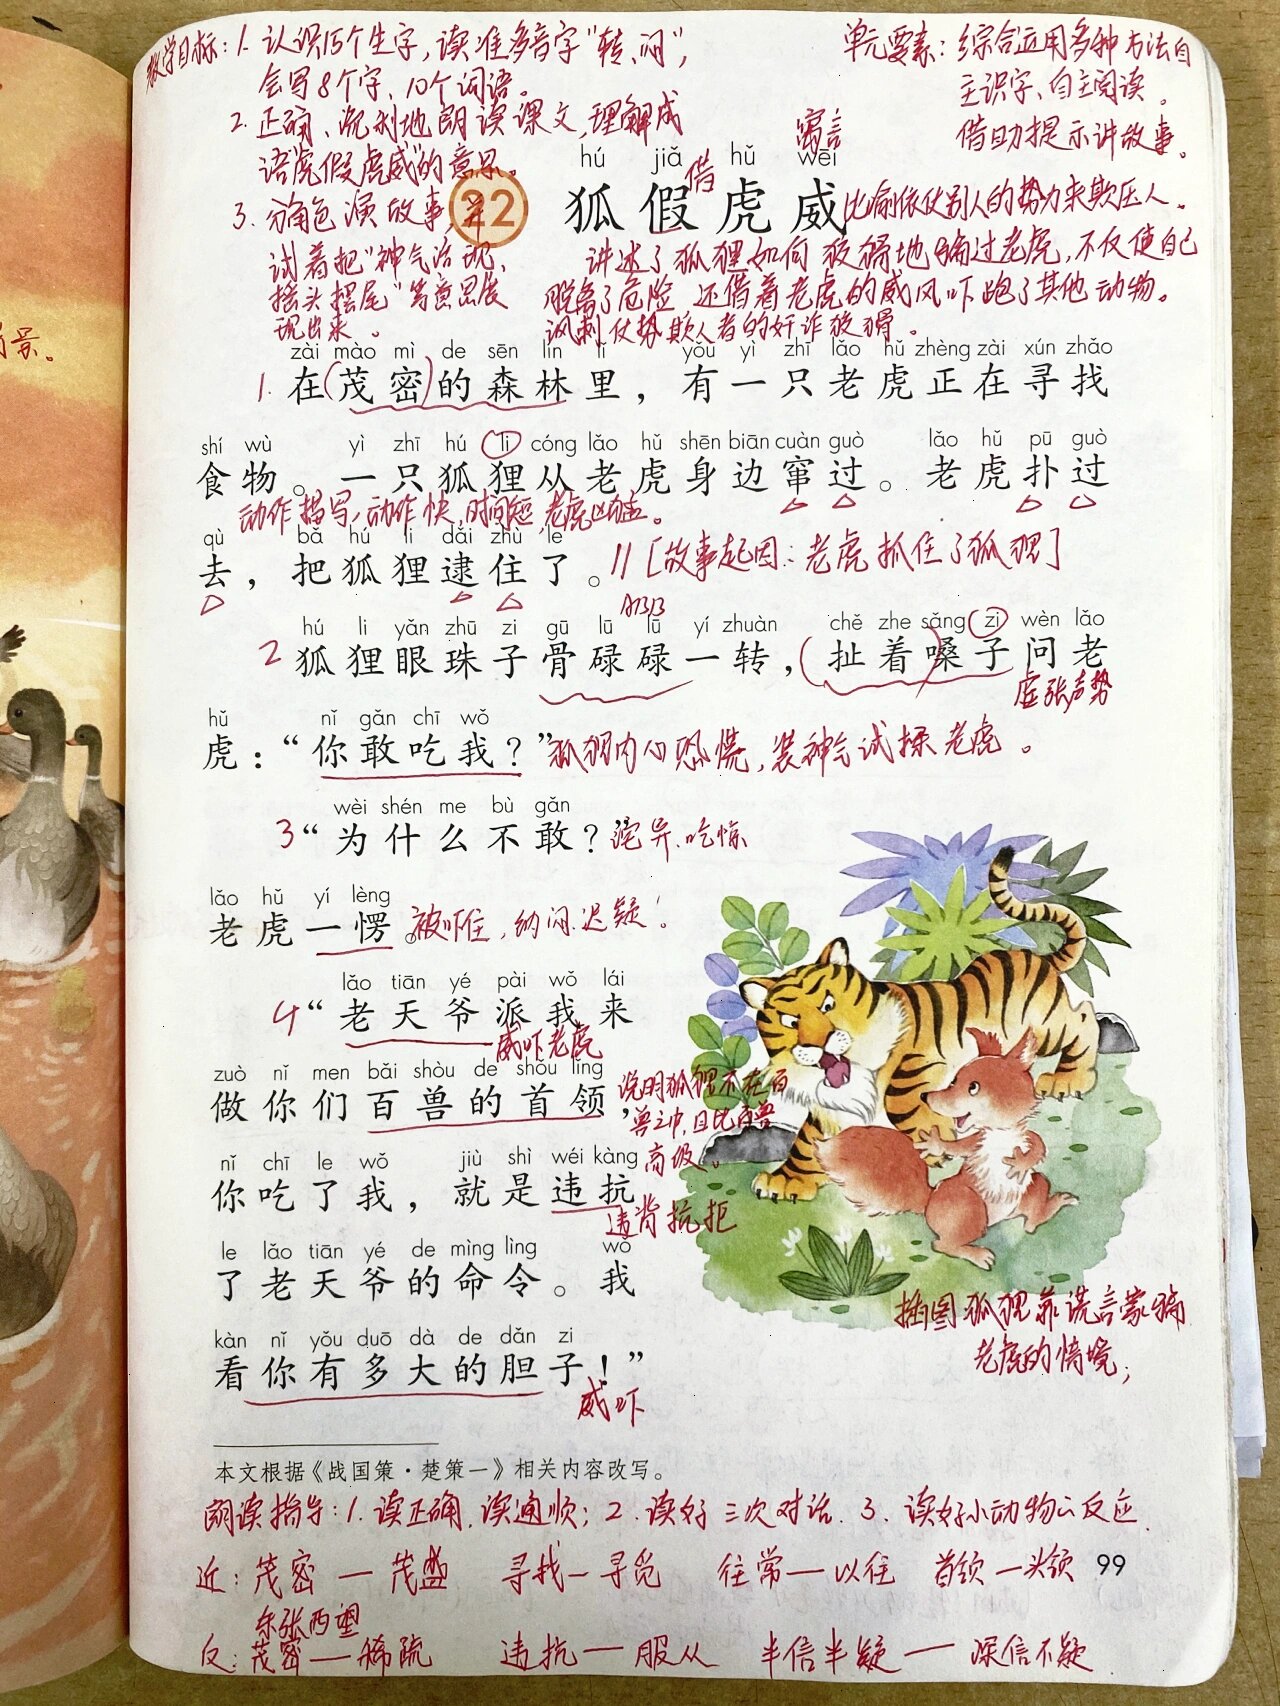 教学目标：1. 认识15个生字，读准多音字“转、闷”，
会写8个字、10个词语。
2. 正确、流利地朗读课文，理解成
语“狐假虎威”的意思。
3. 分角色演故事，并
试着把“神气活现、
摇头摆尾”等意思展
现出来。
单元要素：综合运用多种方法自
主识字、自主阅读。
借助提示讲故事。
寓言
hú jiǎ hǔ wēi
借
22 狐假虎威
比喻依仗别人的势力来欺压人。
讲述了狐狸如何狡猾地骗过老虎，不仅使自己
脱离了危险 还借着老虎的威风吓跑了其他动物。
讽刺仗势欺人者的奸诈狡猾。
景。
zài mào mì de sēn lín lǐ yǒu yì zhī lǎo hǔ zhèng zài xún zhǎo
1. 在(茂密)的森林里，有一只老虎正在寻找
shí wù yì zhī hú li cóng lǎo hǔ shēn biān cuàn guò lǎo hǔ pū guò
食物。一只狐狸从老虎身边窜过。老虎扑过
动作描写，动作快，时间短，老虎凶猛。
qù bǎ hú li dǎi zhù le
去，把狐狸逮住了。 // [故事起因：老虎抓住了狐狸]
ABB
hú li yǎn zhū zi gū lū lū yí zhuàn chě zhe sǎng zi wèn lǎo
2 狐狸眼珠子骨碌碌一转，(扯着)嗓子问老
虚张声势
hǔ nǐ gǎn chī wǒ
虎：“你敢吃我？” 狐狸内心恐慌，装神气试探老虎。
wèi shén me bù gǎn
3 “为什么不敢？” 诧异、吃惊
lǎo hǔ yí lèng
老虎一愣。被吓住，纳闷、迟疑！
lǎo tiān yé pài wǒ lái
4 “老天爷派我来
威吓老虎
zuò nǐ men bǎi shòu de shǒu lǐng
做你们百兽的首领，
说明狐狸不在百
兽之中，且比百兽
高级。
nǐ chī le wǒ jiù shì wéi kàng
你吃了我，就是违抗
违背抗拒
le lǎo tiān yé de mìng lìng wǒ
了老天爷的命令。我
kàn nǐ yǒu duō dà de dǎn zi
看你有多大的胆子！”
威吓
插图 狐狸靠谎言蒙骗
老虎的情境；
本文根据《战国策·楚策一》相关内容改写。
朗读指导：1. 读正确、读通顺；2. 读好三次对话．3. 读好小动物的反应．
近：茂密—茂盛 寻找—寻觅 往常—以往 首领—头领
99
东张西望
反：茂密—稀疏 违抗—服从 半信半疑—深信不疑